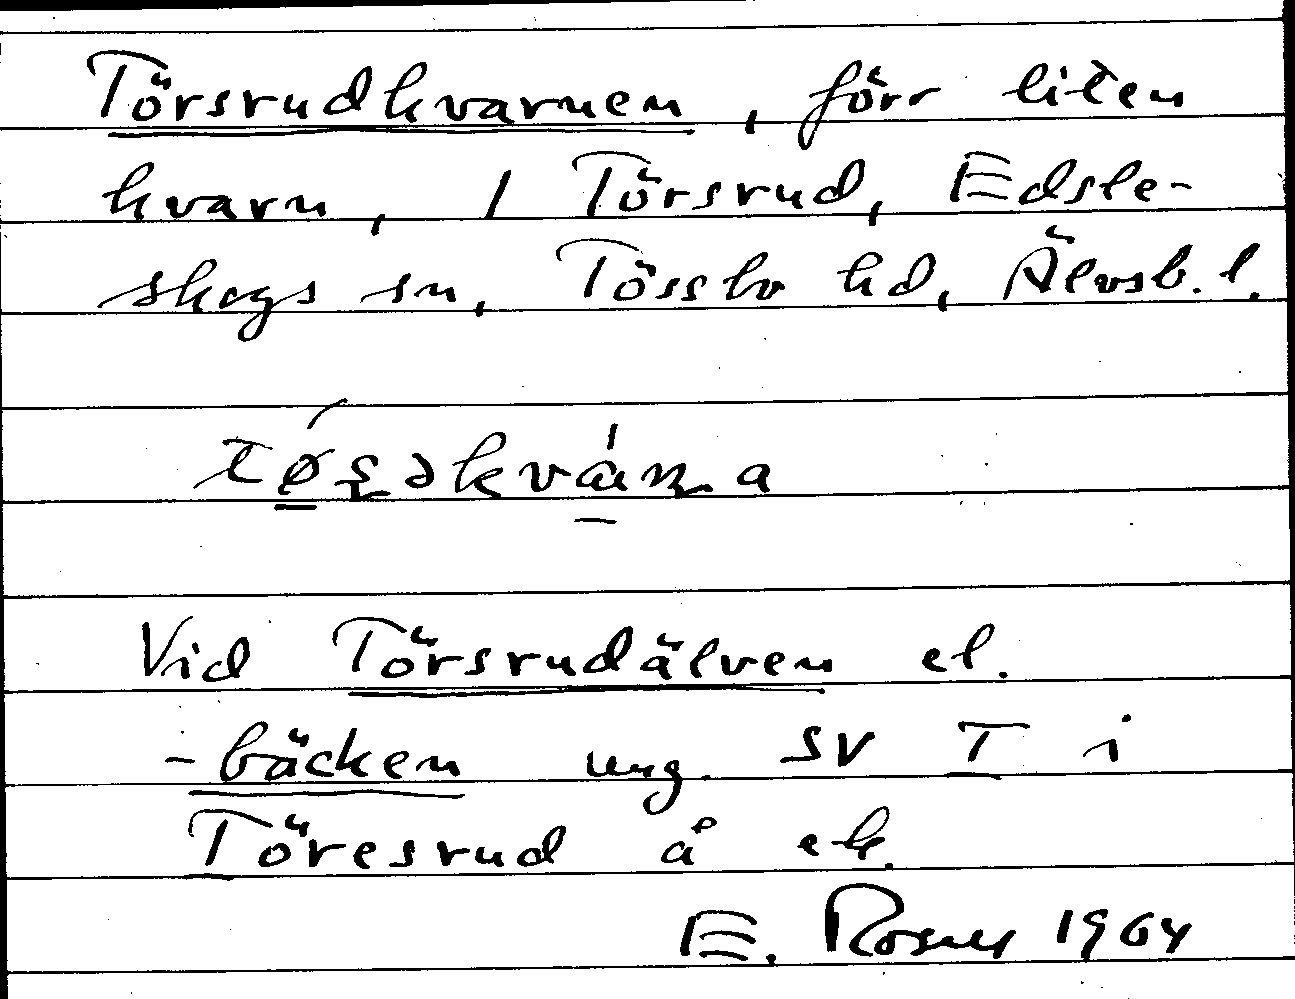 Törsrudkvarnen, förr liten
kvarn, 1 Törsrud, Edsle-
skogs sn, Tössbo hd, Älvsb. l.
Vid Törsrudälven el.
-bäcken ung. SV T i
Töresrud å ek.
E. 1964